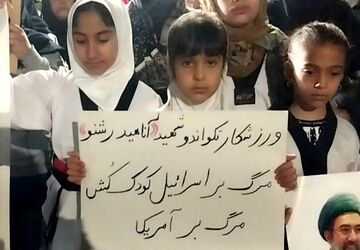 ورزشکار تکواندو شهید «آناهید رشنو»
مرگ بر اسرائیل کودک کُش
مرگ بر آمریکا